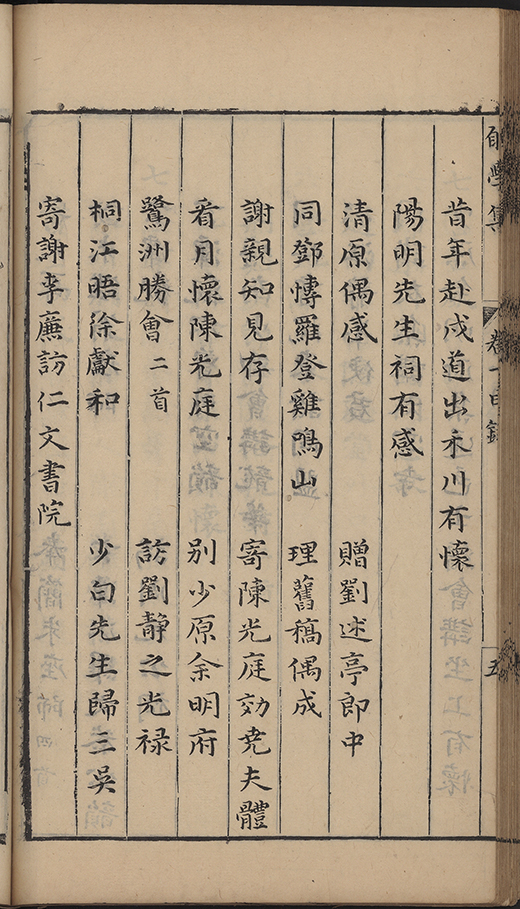 學集 卷 目錄 五
昔年赴戍道出禾川有懷
陽明先生祠有感
清原偶感 贈劉述亭郎中
同鄧愽羅登雞鳴山 理舊稿偶成
謝親知見存 寄陳光庭効尭夫體
看月懷陳光庭 别少原余明府
鷺洲勝會二首 訪劉靜之光禄
桐江晤徐獻和 少白先生歸三吳
寄謝李廉訪仁文書院